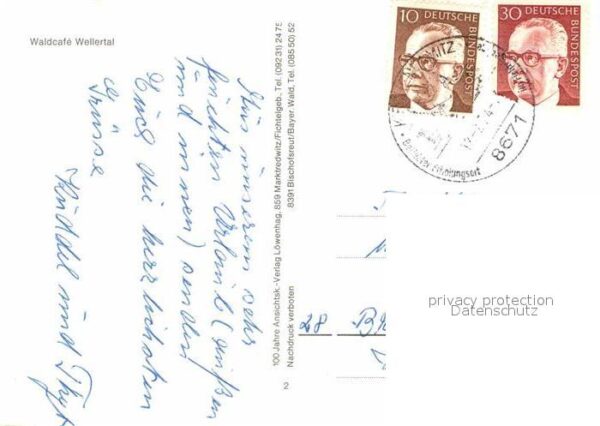 Waldcafé Wellertal
Aus unserem sehr
feuchten Urlaub (außen
und innen) senden
Euch die herzlichsten
Grüsse
100 Jahre Ansichtsk.-Verlag Löwenhag, 859 Marktredwitz/Fichtelgeb., Tel. (09231) 2475
8391 Bischofsreut/Bayer Wald, Tel. (08550) 52
Nachdruck verboten
2
10 DEUTSCHE
BUNDESPOST
30 DEUTSCHE
BUNDESPOST
8671
28
privacy protection
Datenschutz